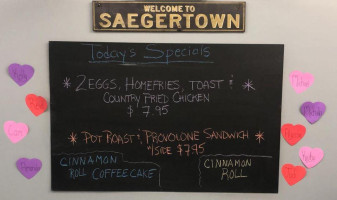 WELCOME TO
SAEGERTOWN
Today's Specials
* 2 EGGS, HOMEFRIES, TOAST & *
COUNTRY FRIED CHICKEN
$7.95
* POT ROAST & PROVOLONE SANDWICH *
W/SIDE $7.95
CINNAMON
ROLL COFFEECAKE
CINNAMON
ROLL